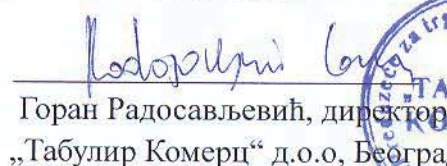 Горан Радосављевић, директор
„Табулир Комерц“ д.о.о, Београ